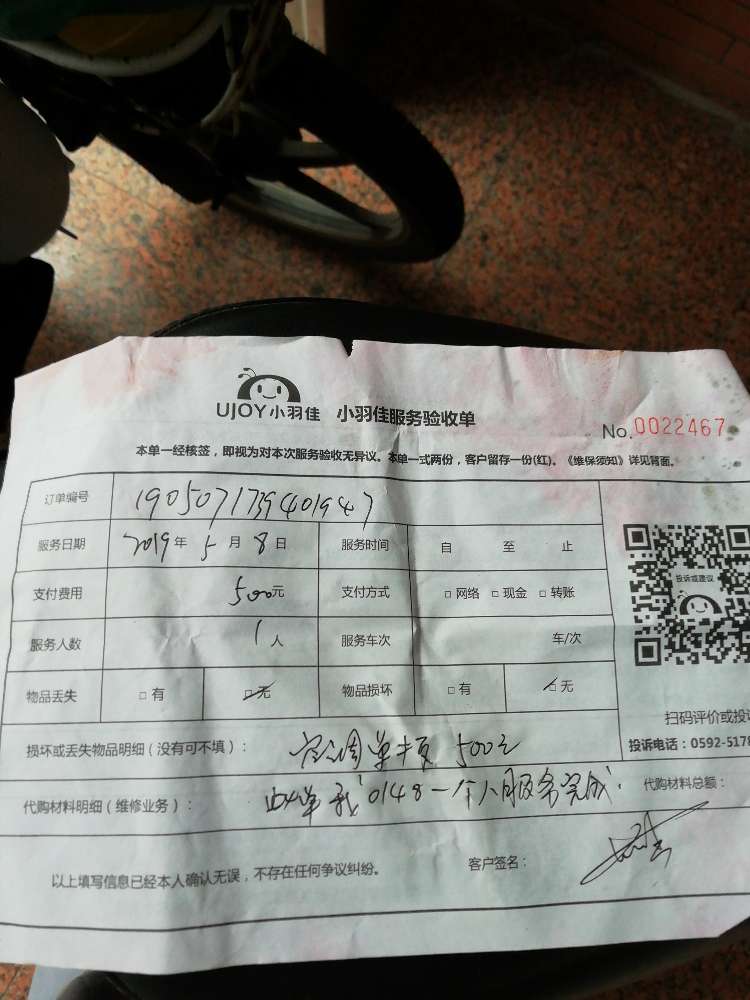 UJOY小羽佳 小羽佳服务验收单
No.0022467
本单一经核签，即视为对本次服务验收无异议。本单一式两份，客户留存一份(红)。《维保须知》详见背面。
订单编号 1905071739401947
服务日期 2019年5月8日 服务时间 自 至 止
支付费用 500元 支付方式 □网络 □现金 □转账
投诉或建议
服务人数 1人 服务车次 车/次
物品丢失 □有 □无 物品损坏 □有 □无
扫码评价或投诉
损坏或丢失物品明细（没有可不填）： 单项500元
投诉电话：0592-5178
代购材料明细（维修业务）： 此单我0148一个人服务完成.
代购材料总额：
以上填写信息已经本人确认无误，不存在任何争议纠纷。
客户签名：